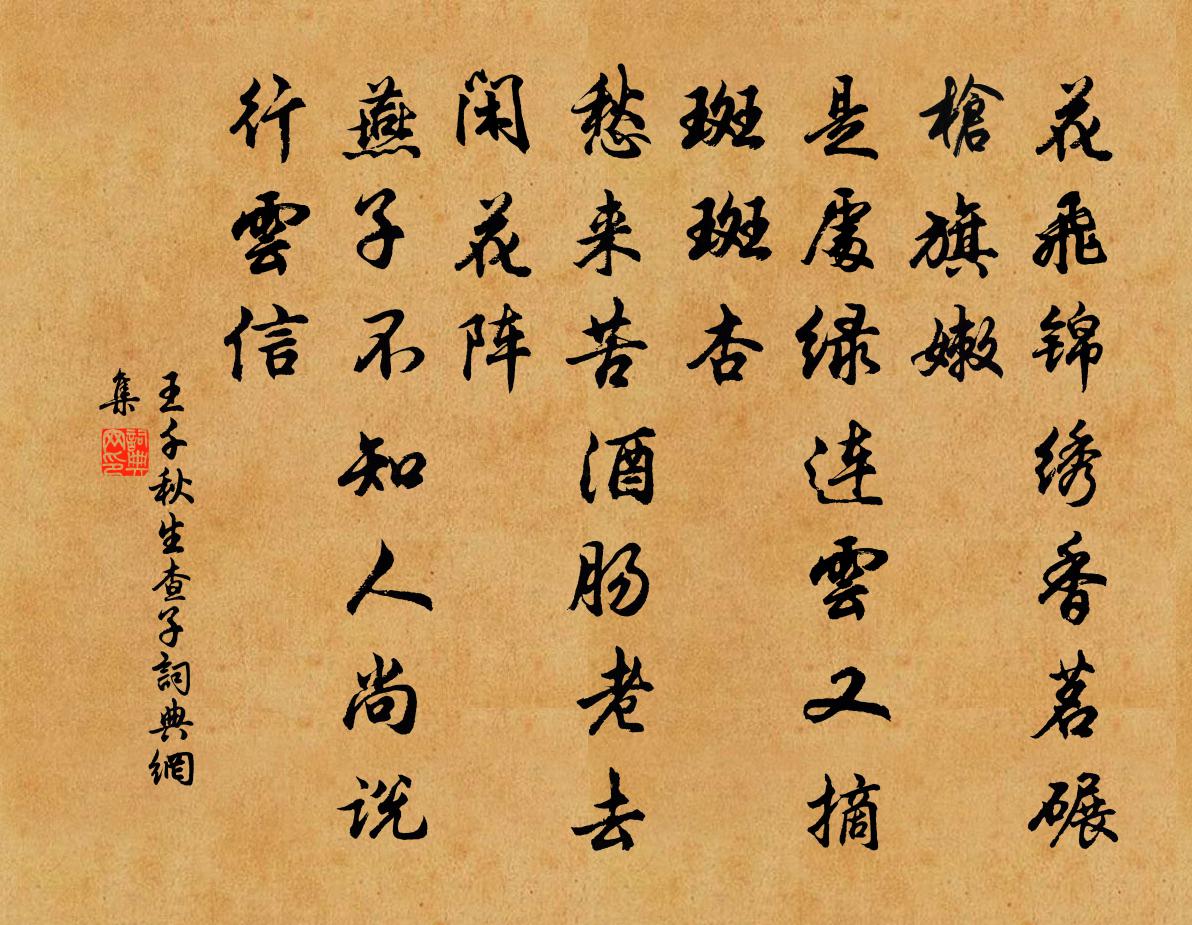 花飛锦绣香茗碾
槍旗嫩
是處绿连雲又摘
斑斑杏
愁来苦酒肠老去
闲花阵
燕子不知人尚说
行雲信
王千秋生查子詞典網
集
詞典
网印